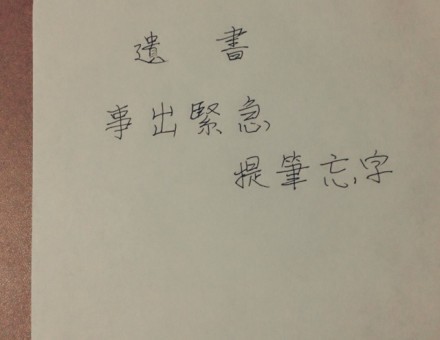 遺書
事出緊急
提筆忘字